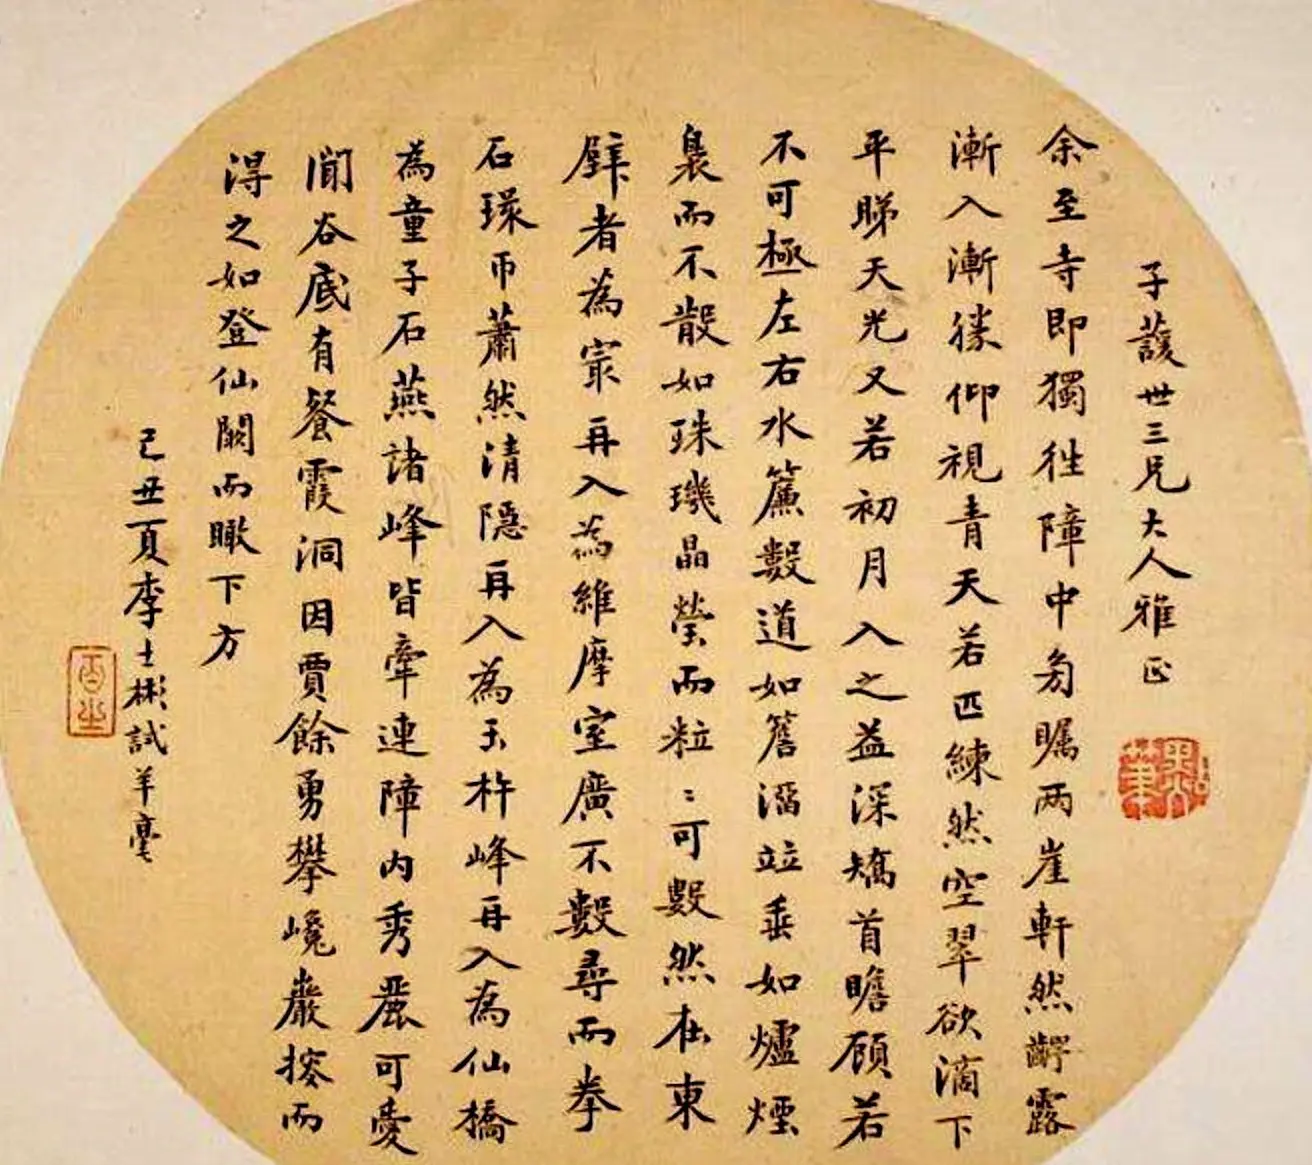 子䕶世三兄大人雅正
余至寺即獨徃障中芻矚兩崖軒然齶露
漸入漸勝仰視青天若匹練然空翠欲滴下
平睇天光又若初月入之益深矯首瞻顧若
不可極左右水簾數道如簷溜竝垂如爐煙
裊而不散如珠璣晶瑩而粒〻可數然在東
壁者為冣再入為維摩室廣不數尋而拳
石環帀蕭然清隱再入為玉杵峰再入為仙橋
為童子石燕諸峰皆牽連障內秀麗可愛
閒谷底有餐霞洞因賈餘勇攀巉巖接而
得之如登仙闕而瞰下方
己丑夏李士彬試羊毫